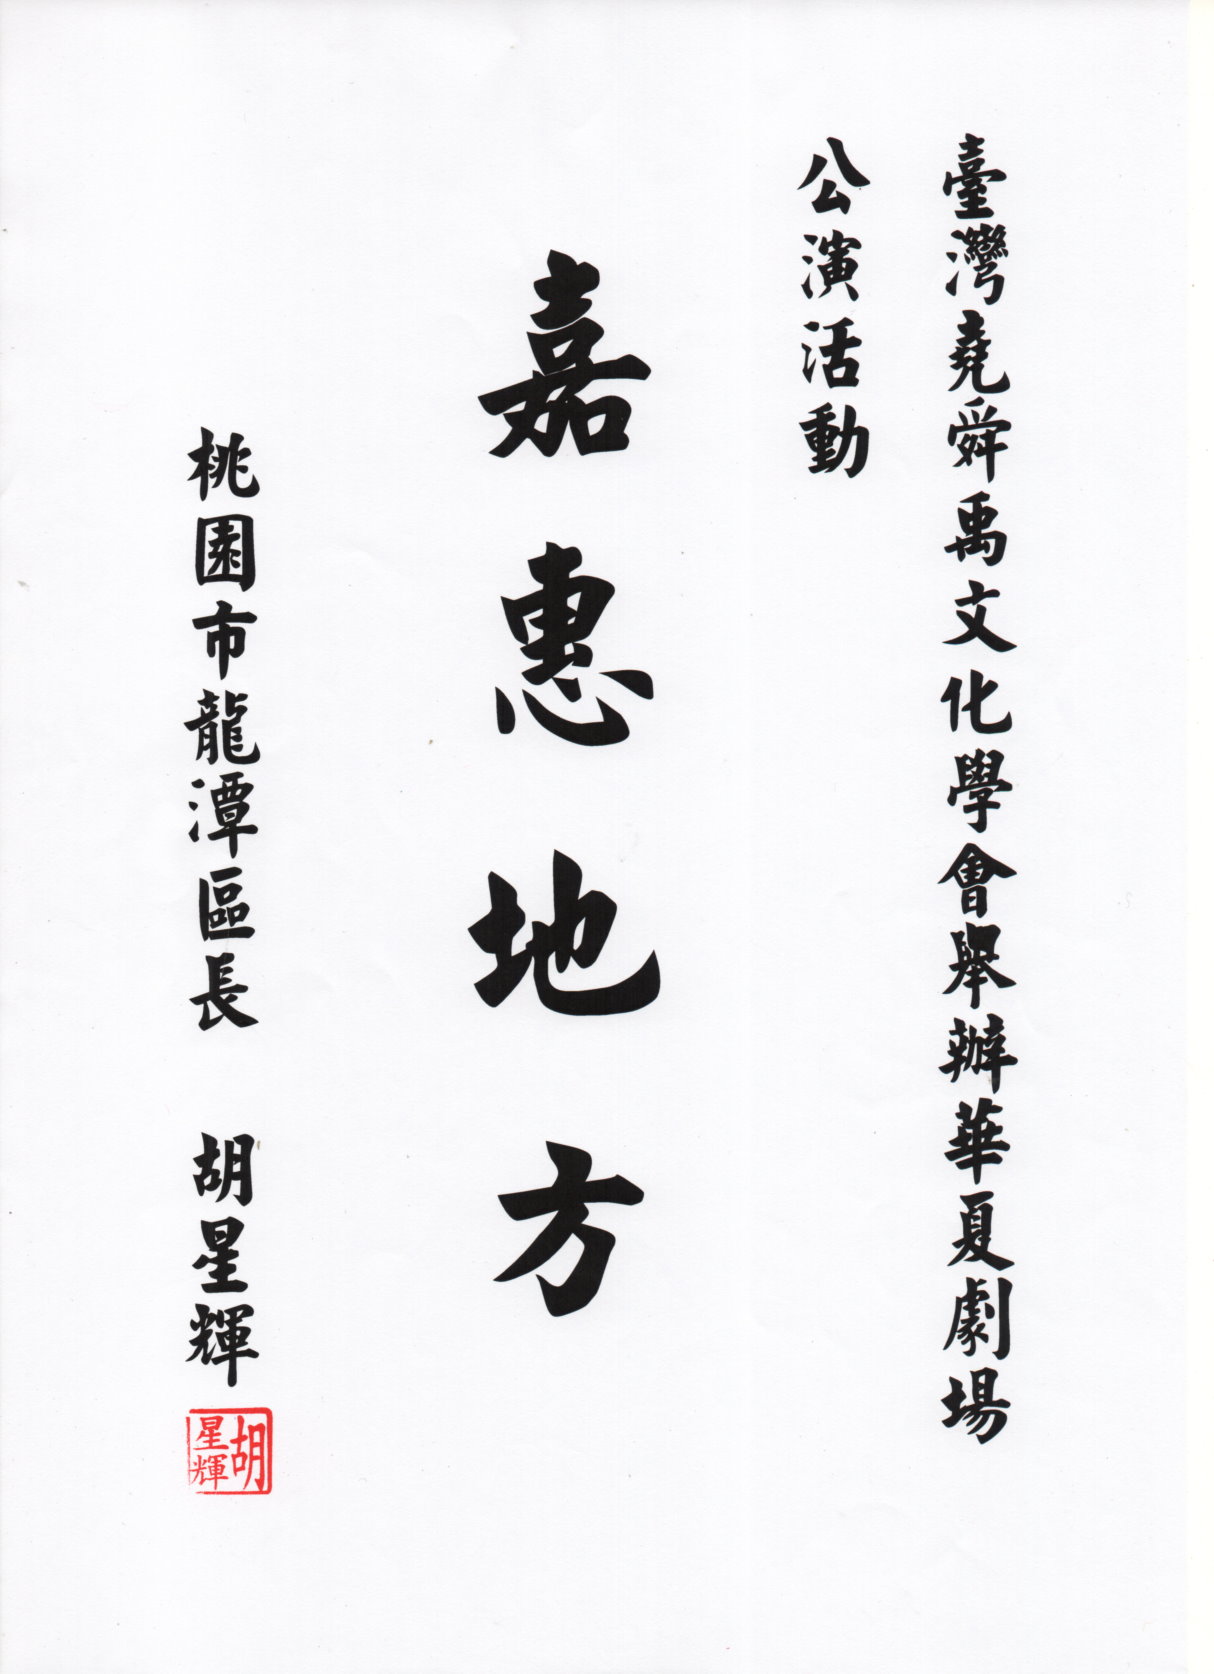 臺灣堯舜禹文化學會舉辦華夏劇場
公演活動
嘉惠地方
桃園市龍潭區長 胡星輝
胡星輝